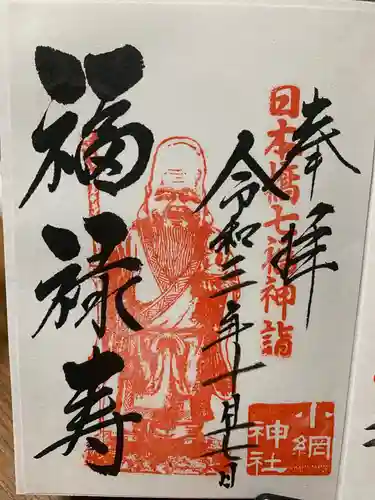 奉拝
日本橋七福神詣
令和三年十一月七日
福禄寿
小網
神社